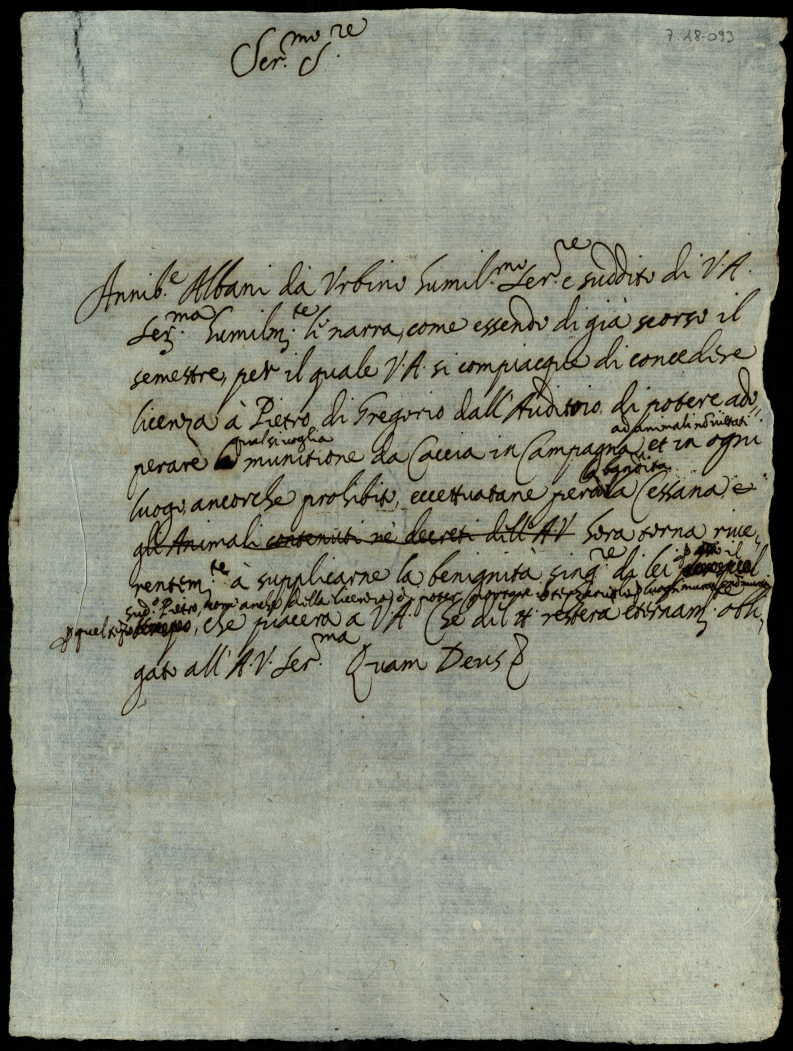 7-18-093
Ser.mo S.re
Annib.e Albani da Urbino humil.mo Ser.re e suddito di V.A.
Ser.ma humilm.te li narra, come essendo di già scorso il
semestre, per il quale V.A. si compiacque di concedere
licenza à Pietro di Gregorio dall'Auditoio di potere ado„
ad animali nò vietati
qual si voglia
perare munitione da Caccia in Campagna, et in ogni
luogo, ancorche prohibito, eccettuatane però la Cessana, e
bandita
gli Animali contenuti ne decreti dell'A.V. hora torna rive„
rentem.te à supplicarne la benignità sing.re di lei il
sud.o Pietro, com'anche della licenza di poter portare
quel tempo, che piacerà a V.A. Che del tt.o resterà eternam. obli„
gato all'A.V. Ser.ma Quam Deus